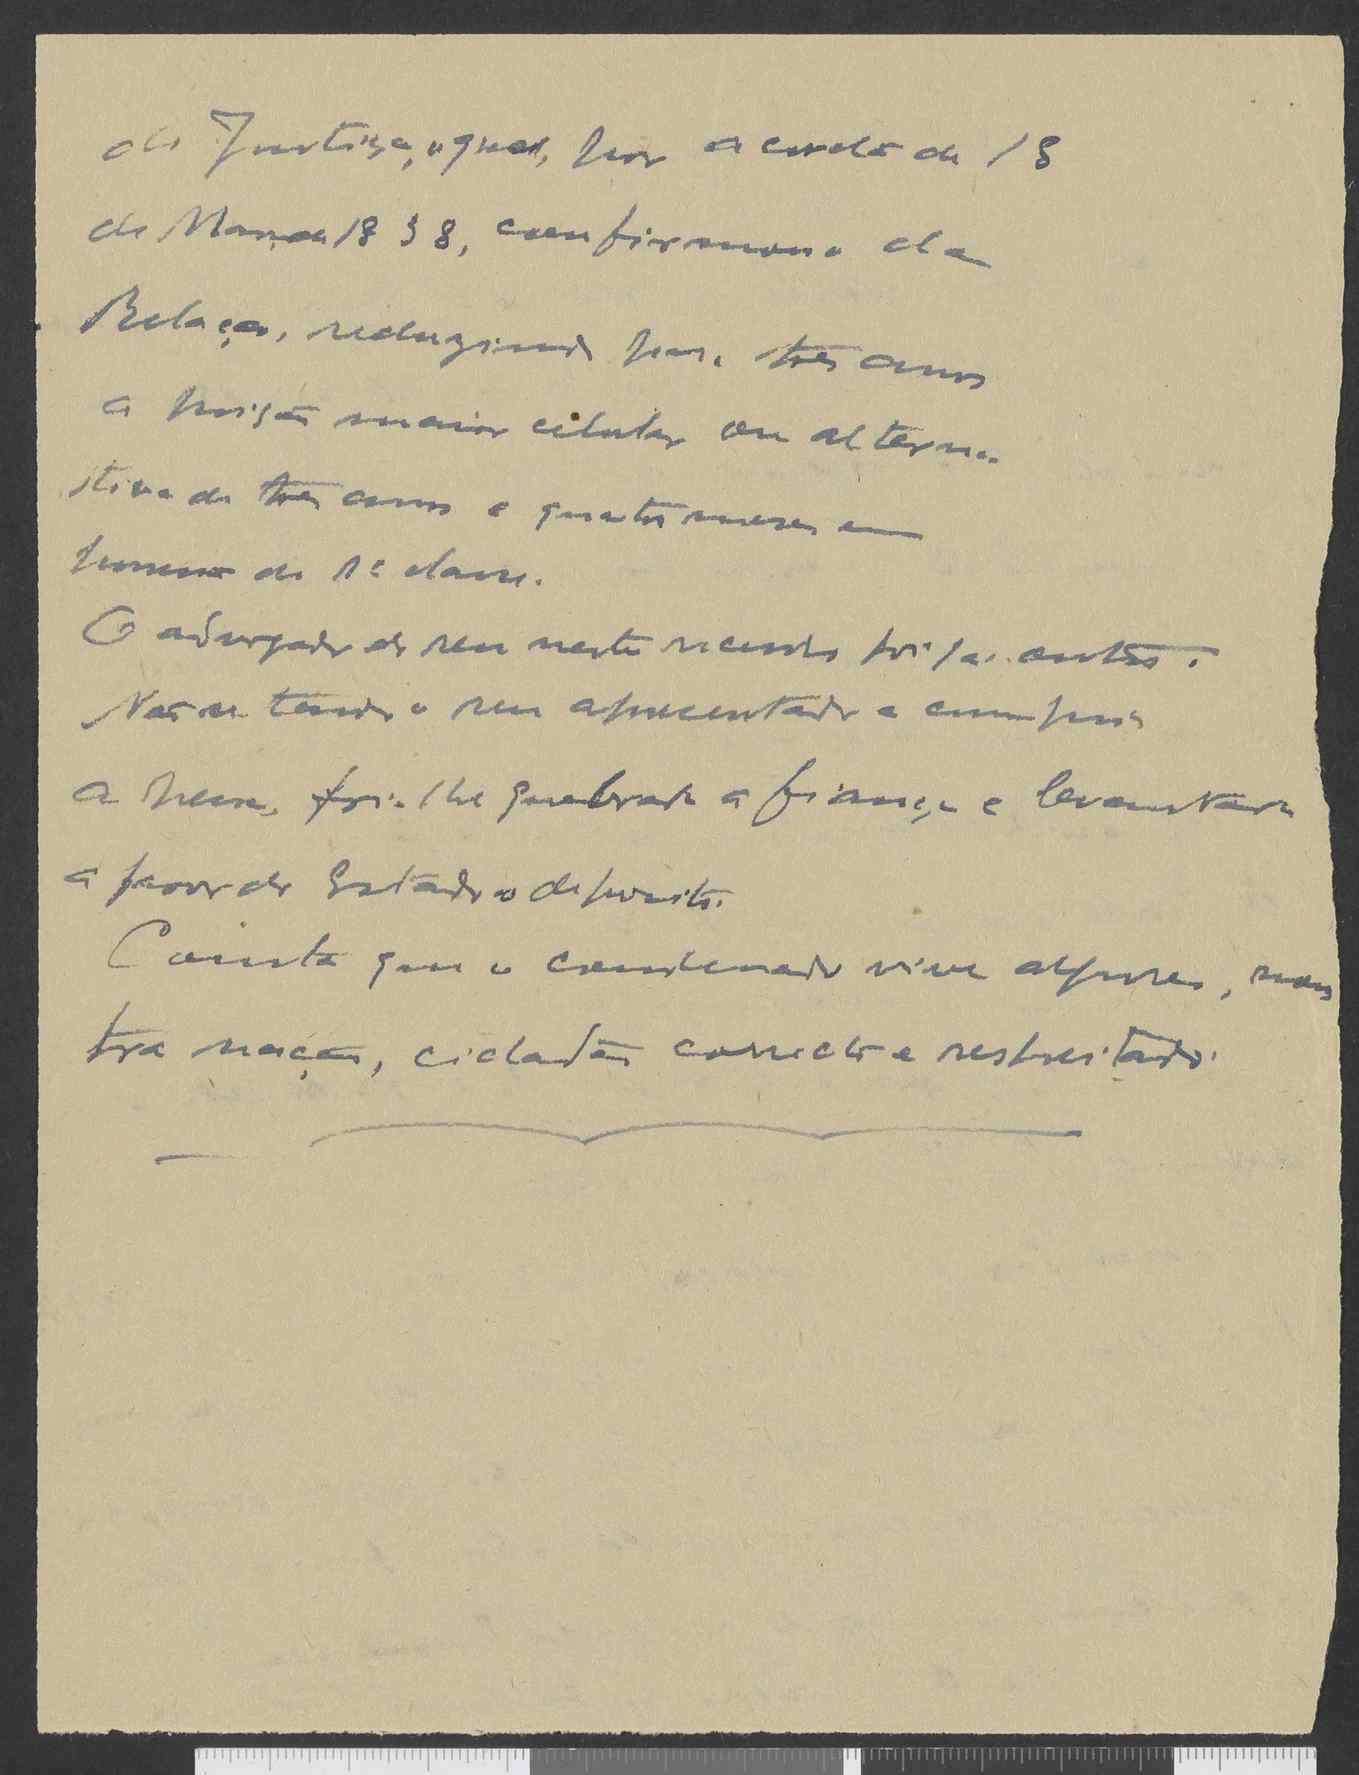 de Justiça, o qual, por acordão de 18
de Março de 1898, confirmou o da
Relação, reduzindo para três anos
a prisão maior celular ou alterna-
tiva de três anos e quatro meses em
possessão de 1ª classe.
O advogado do reu neste recurso foi
Não se tendo o reu apresentado a cumprir
a pena, foi-lhe quebrada a fiança e levantado
a favor do Estado o deposito.
Consta que o condenado vive algures, nou
tra nação, cidadão correcto e respeitado.